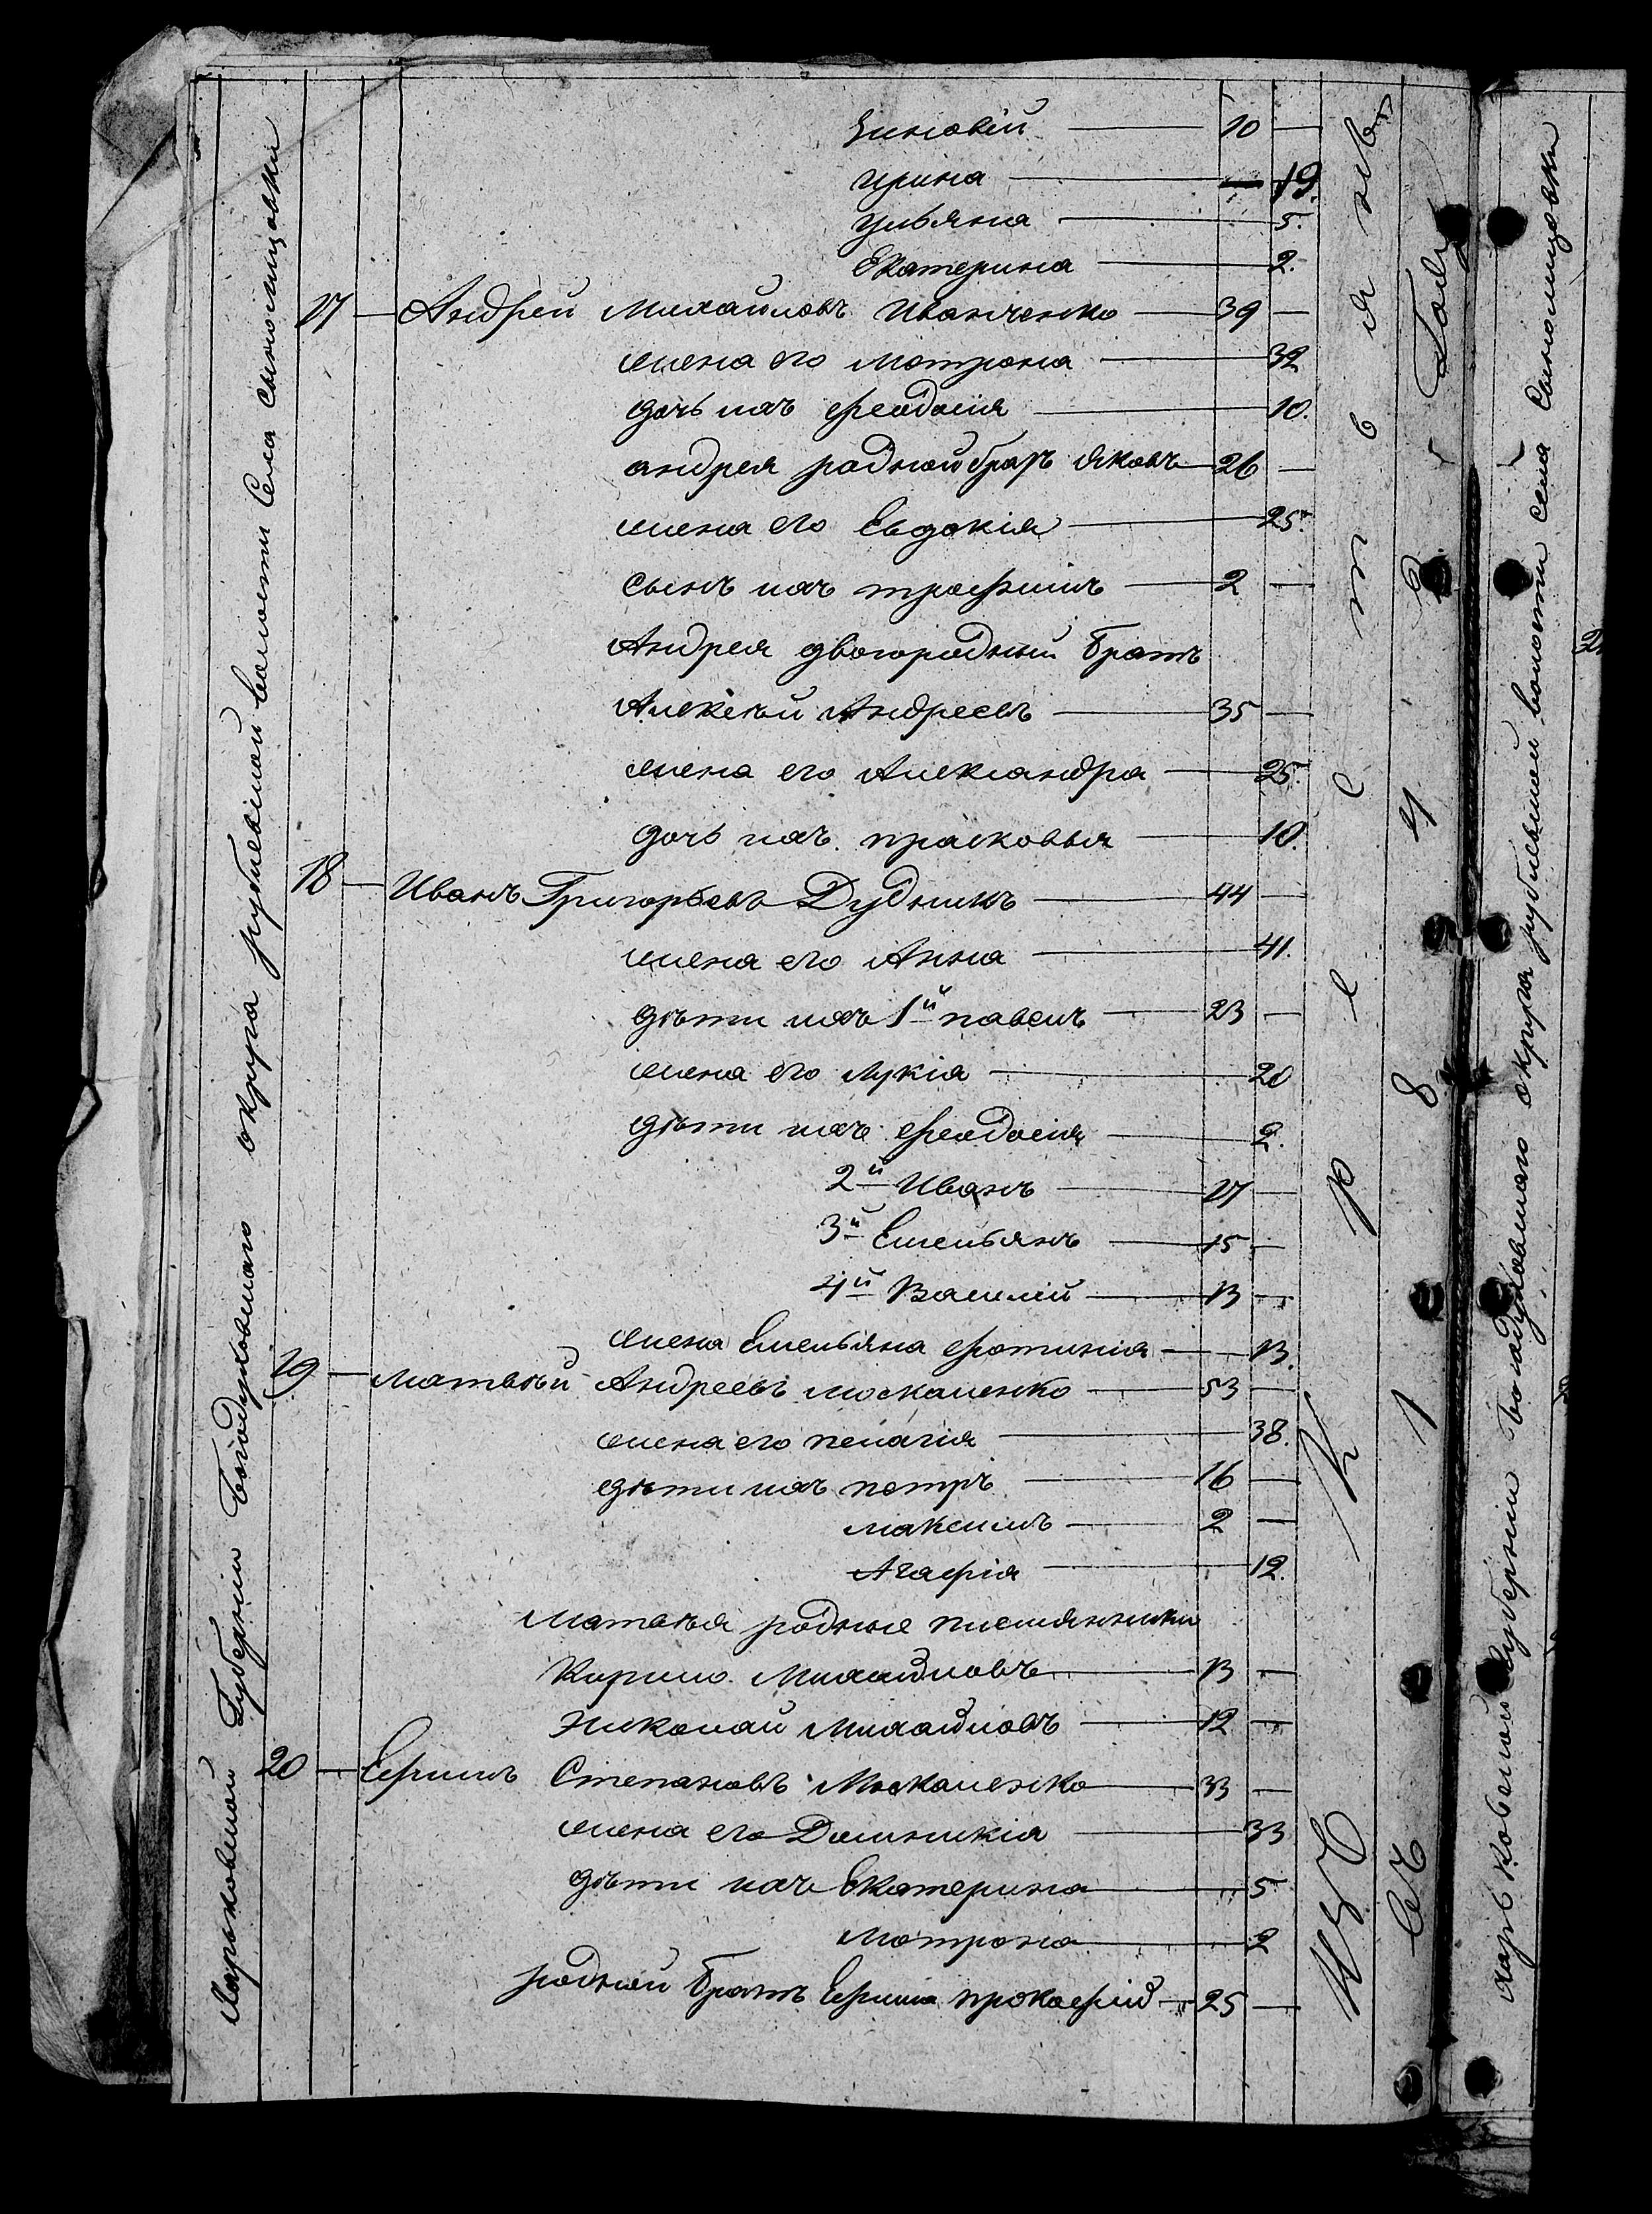 Зиновій — 10 —
Ирина — 19.
Ульяна — 5.
Екатерина — 2.
17 — Андрей Михайловъ Иванченко — 39 —
жена его Мотрона — 32
дочь ихъ Феодосія — 10.
андрея родной братъ Яковъ — 26 —
жена его Евдокія — 25.
сынъ ихъ трофимъ — 2 —
Андрея двоюродный братъ
Алексѣй Андреевъ — 35 —
жена его Александра — 25.
дочь ихъ прасковья — 10.
18 — Иванъ Григорьевъ Дудникъ — 44 —
жена его Анна — 41.
дѣти ихъ 1й павелъ — 23 —
жена его лукія — 20
дѣти ихъ Феодосія — 2.
2й Иванъ — 17 —
3й Емельянъ — 15 —
4й Василій — 13 —
жена Емельяна фотинія — 13.
19 — Матвѣй Андреевъ москаленко — 53 —
жена его пелагія — 38.
дѣти ихъ петръ — 16 —
максимъ — 2 —
Агафія — 12.
Матвѣя родные племянники
Кирило Михайловъ — 13 —
Николай Михайловъ — 12 —
20 — Ефимъ Степановъ Москаленко — 33 —
жена его Домникія — 33
дѣти ихъ Екатерина — 5
Мотрона — 2
родной братъ Ефима прокофій — 25 —
Харьковской Губерніи Богодуховскаго округа рублевской волости Села Сънолицовки
Изъ Крестьянъ
Съ 1847 Года
Харьковской Губерніи Богодуховскаго округа рублевской волости села Сънолицовки